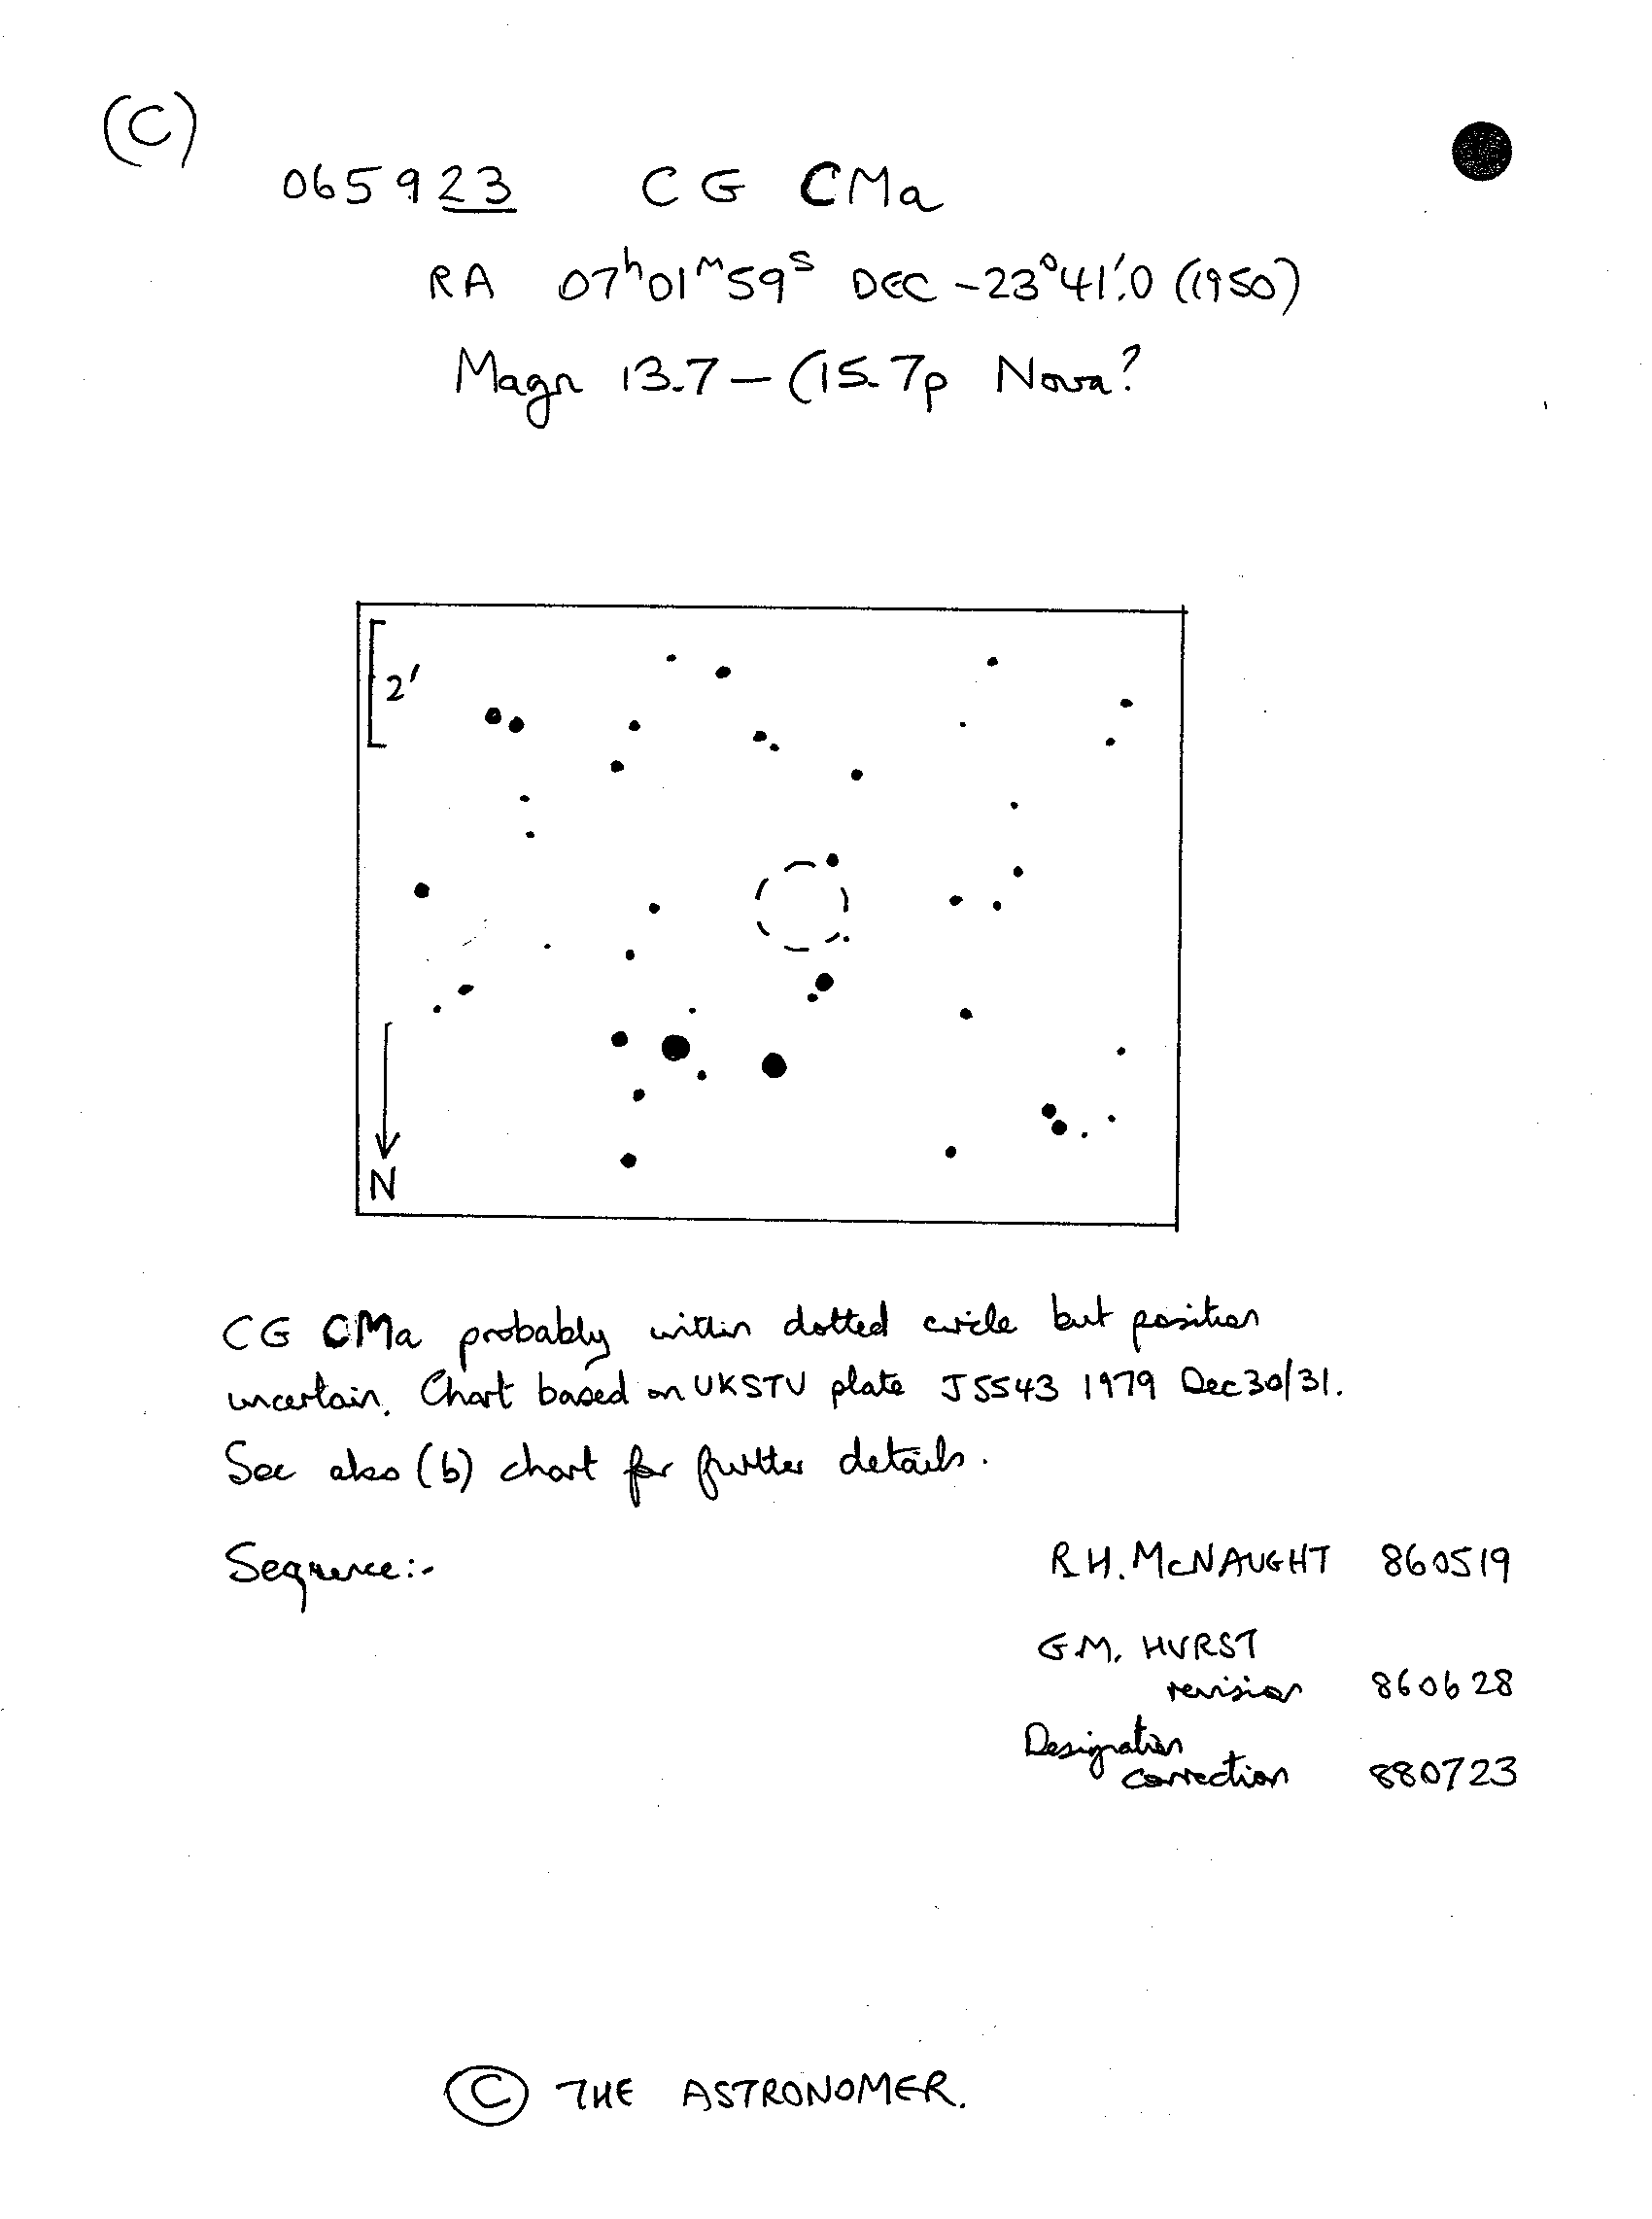 (C)
065923 CG CMa
RA 07ʰ01ᵐ59ˢ DEC -23°41'.0 (1950)
Magn 13.7 — (15.7p Nova?
2'
N
CG CMa probably within dotted circle but position
uncertain. Chart based on UKSTU plate J5543 1979 Dec 30/31.
See also (b) chart for further details.
Sequence:-
R.H. McNAUGHT 860519
G.M. HURST
revision 860628
Designation
correction 880723
© THE ASTRONOMER.